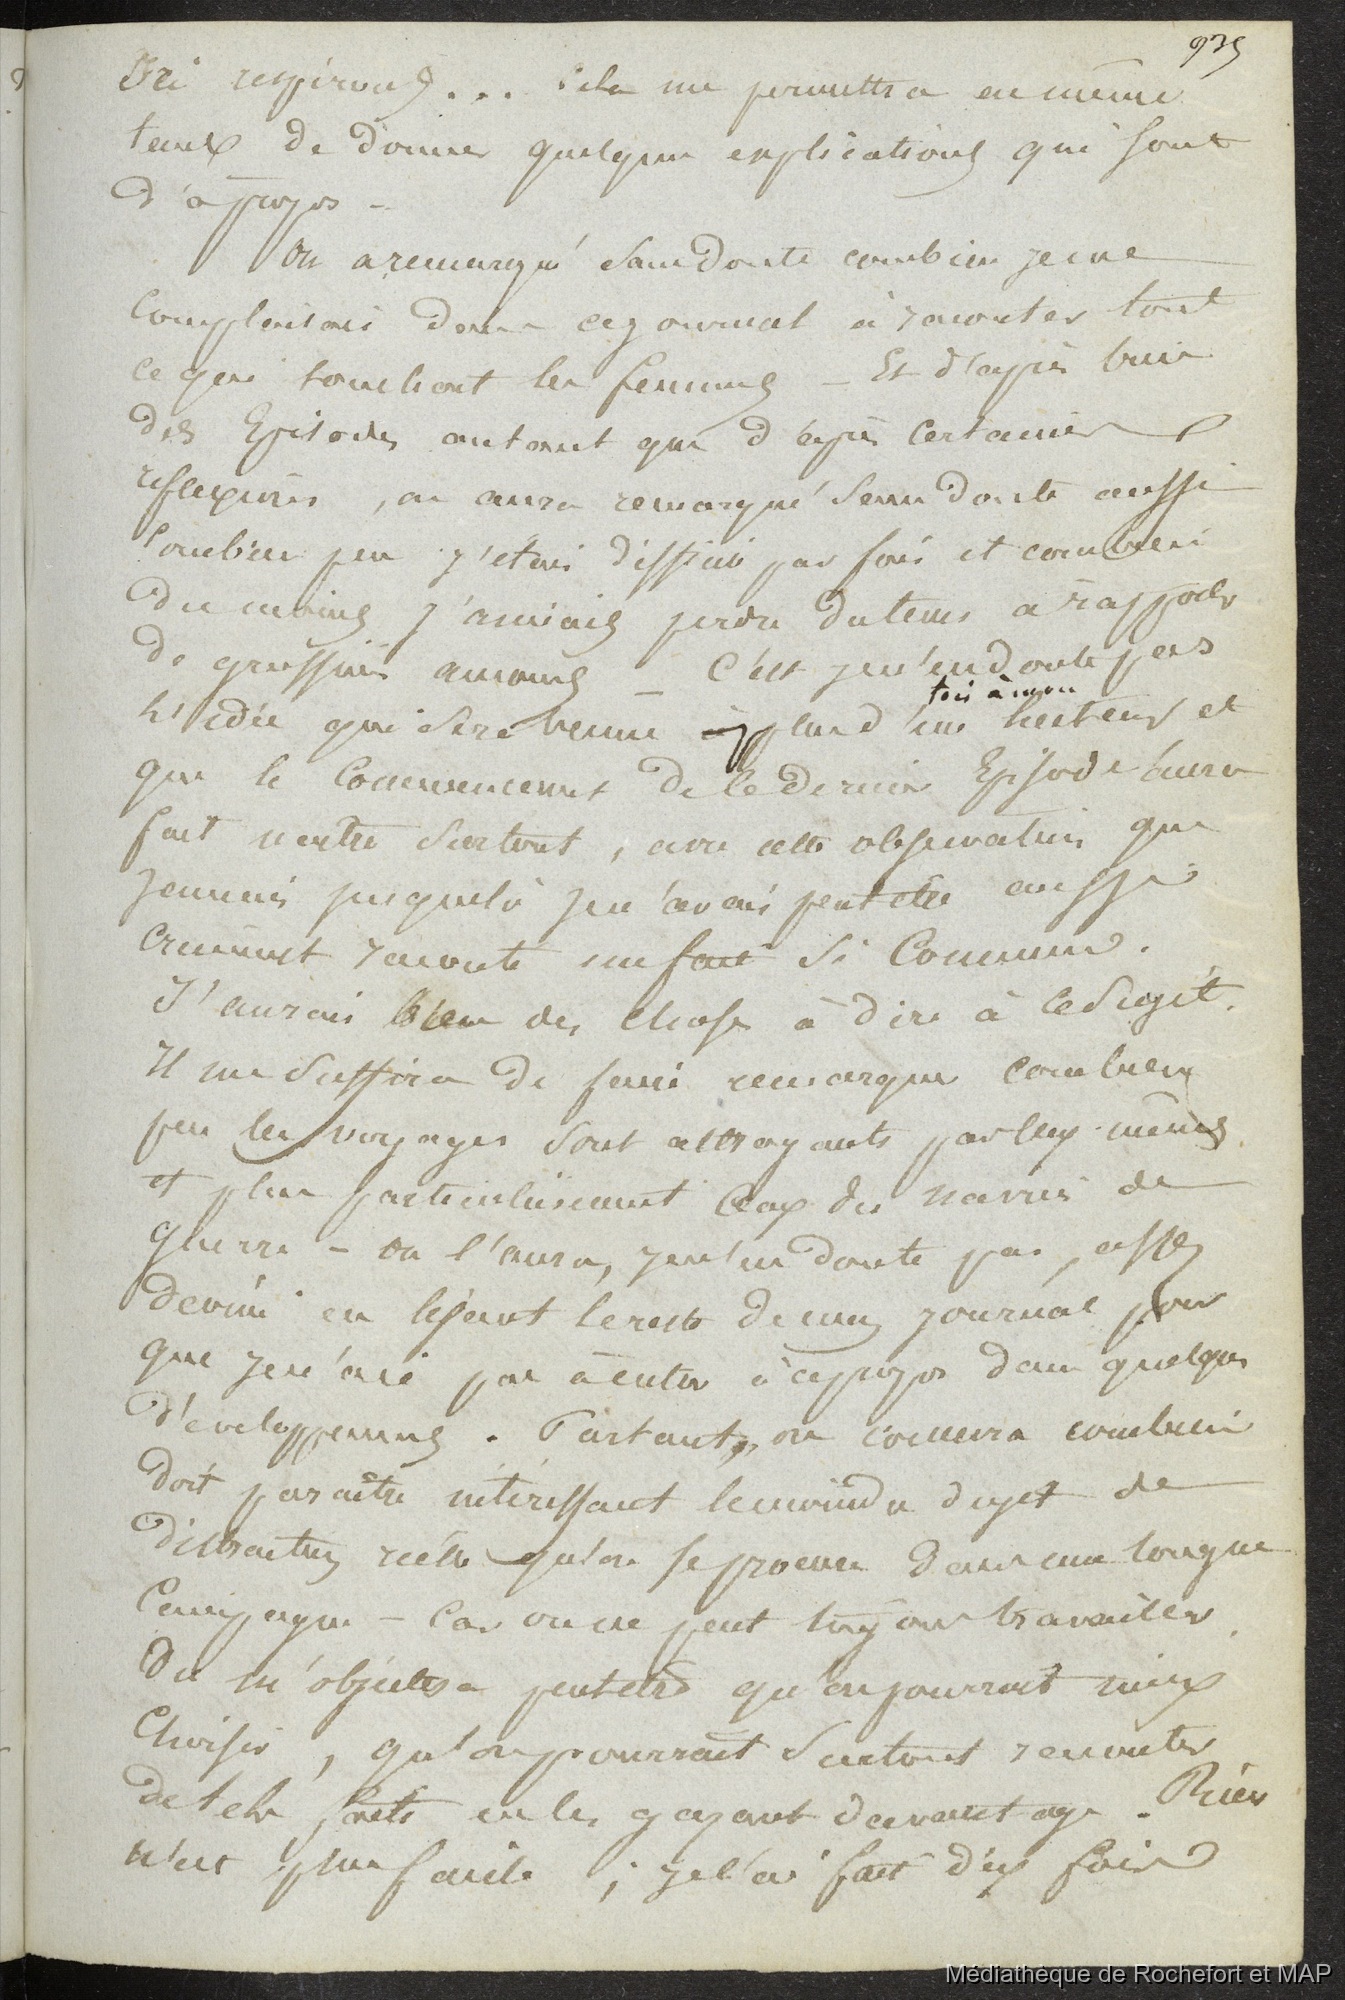 935
Ici respirons... Cela me permettra en même
tems de donner quelques explications qui sont
d'à propos -
On a remarqué sans doute combien je me
complaisais dans ce journal à raconter tout
ce qui touchait les femmes - Et d'après bien
des Episodes autant que d'après certaines
reflexions, on aura remarqué sans doute aussi
combien peu j'étais difficile par fois et combien
du moins j'aimais perdre du tems à rapporter
de grossiers amours - C'est je n'en doute pas
l'idée qui sera venue à plus d'un lecteur et
fois à mon
que le commencement de ce dernier Episode aura
fait naitre surtout, avec cette observation que
jamais jusque là je n'avais peut etre aussi
crument raconté un fait si commun.
J'aurais bien des choses à dire à ce sujet.
Il me suffira de faire remarquer combien
peu les voyages sont attrayants par eux-mêmes
et plus particulièrement ceux des navires de
guerre - on l'aura, je n'en doute pas, assez
deviné en lisant le reste de mon journal pour
que je n'aie pas à entrer à ce propos dans quelques
développemens. Partant, on concevra combien
doit paraître intéressant le moindre sujet de
distraction réelle qu'on se procure dans une longue
Campagne - Car on ne peut toujours travailler.
On m'objectera peut etre qu'on pourrait mieux
choisir, qu'on pourrait surtout raconter
de tels faits en les gazant davantage. Rien
n'est plus facile ; je l'ai fait dix fois
Médiathèque de Rochefort et MAP